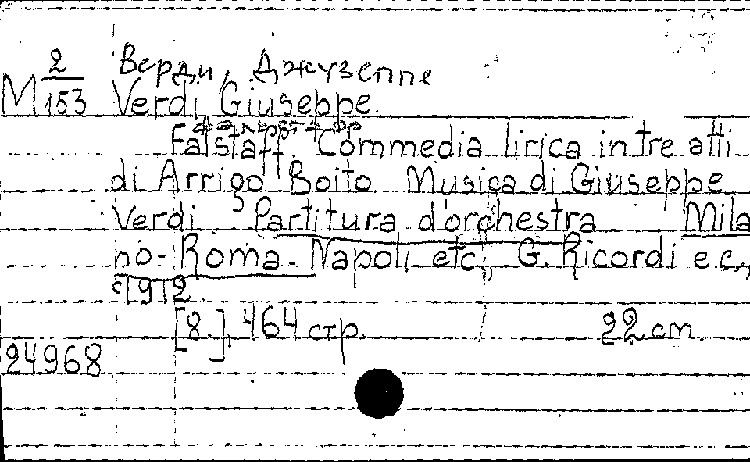 2 Верди, Джузеппе
M 153 Verdi Giuseppe.
Falstaff. Commedia lirica in tre atti
di Arrigo Boito. Musica di Giuseppe
Verdi. Partitura d'orchestra Mila
no-Roma-Napoli, etc, G. Ricordi e.c.,
1912.
[8.], 464 стр. 22 cm
24968